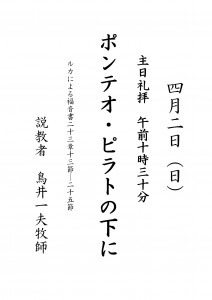 四月二日（日）
主日礼拝　午前十時三十分
ポンテオ・ピラトの下に
ルカによる福音書二十三章十三節―二十五節
説教者　鳥井一夫牧師